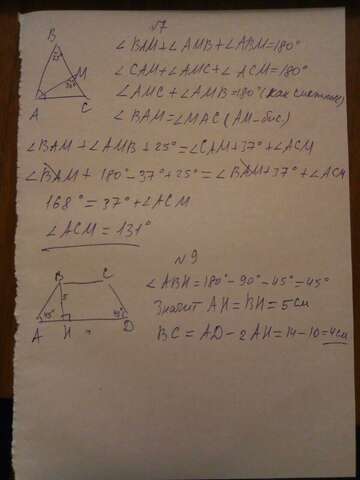 №7
B
25°
M
37°
A C
∠BAM+∠AMB+∠ABM=180°
∠CAM+∠AMC+∠ACM=180°
∠AMC+∠AMB=180° (как смежные)
∠BAM=∠MAC (AM-бис)
∠BAM+∠AMB+25°=∠CAM+37°+∠ACM
∠BAM+180°-37°+25°=∠BAM+37°+∠ACM
168°=37°+∠ACM
∠ACM=131°
№9
B C
5
45° 45°
A H D
∠ABH=180°-90°-45°=45°
Значит AH=BH=5см
BC=AD-2AH=14-10=4см